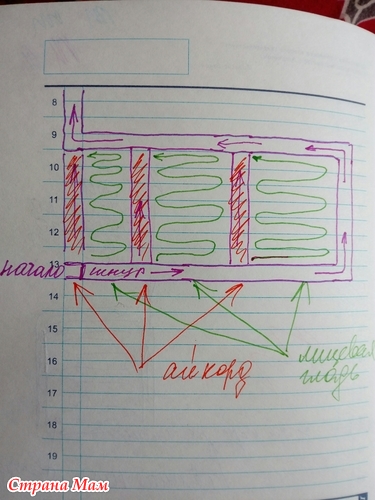 8
9
10
11
12
13
начало шнур
14
15
16
айкорд
лицевая
гладь
17
18
19
Страна Мам